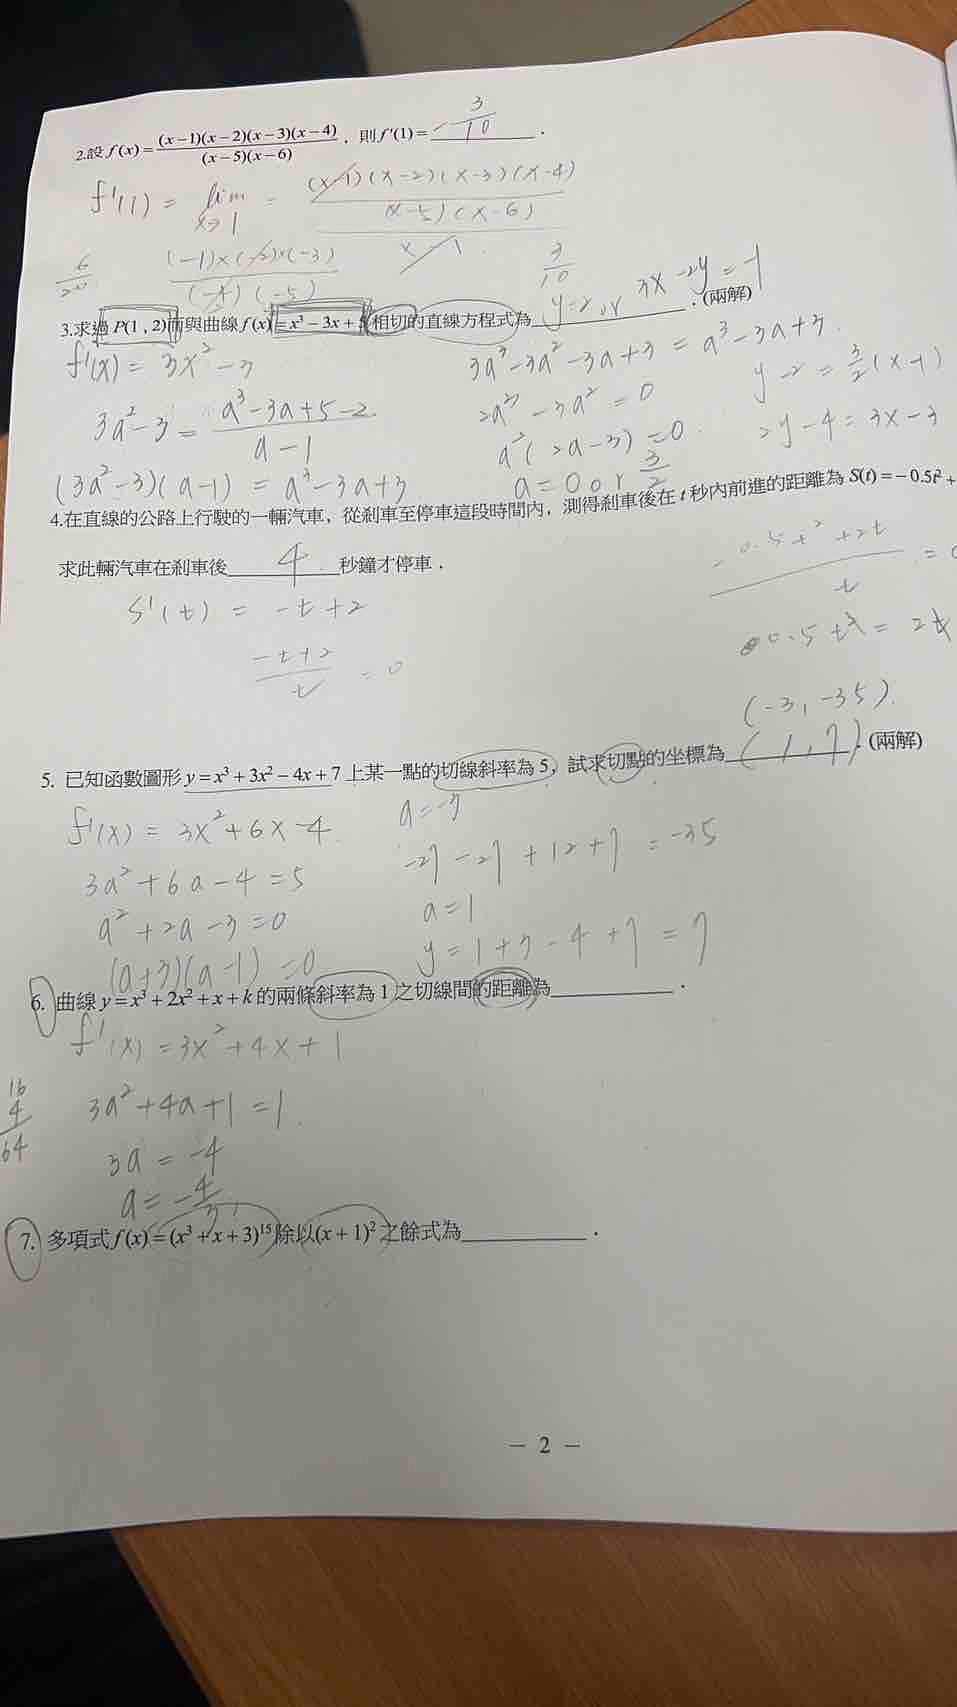 2.設 f(x)=\frac{(x-1)(x-2)(x-3)(x-4)}{(x-5)(x-6)}，則 f'(1)= -\frac{3}{10}．
f'(1) = lim_{x→1} = \frac{\frac{(x-1)(x-2)(x-3)(x-4)}{(x-5)(x-6)}}{x-1}
\frac{6}{20} \frac{(-1)×(-2)×(-3)}{(-4)(-5)} \frac{3}{10}
3.求過 P(1,2)而與曲線 f(x)=x³-3x+5 相切的直線方程式為 y=2 or 3x-2y=-1．(兩解)
f'(x) = 3x²-3
3a³-3a²-3a+3 = a³-3a+3
3a²-3 = \frac{a³-3a+5-2}{a-1}
2a³-3a²=0
y-2 = \frac{3}{2}(x-1)
a²(2a-3)=0
2y-4=3x-3
(3a²-3)(a-1) = a³-3a+3
a=0 or \frac{3}{2}
4.在直線的公路上行駛的一輛汽車，從剎車至停車這段時間內，測得剎車後在 t 秒內前進的距離為 S(t)=-0.5t²+
求此輛汽車在剎車後 4 秒鐘才停車．
\frac{-0.5t²+2t}{t} =
S'(t) = -t+2
0.5t² = 2t
\frac{-t+2}{t} = 0
(-3,-35).
5. 已知函數圖形 y=x³+3x²-4x+7 上某一點的切線斜率為 5，試求切點的坐標為 (1,7)．(兩解)
f'(x) = 3x²+6x-4
a=-3
3a²+6a-4=5
-27-27+12+7 = -35
a²+2a-3=0
a=1
(a+3)(a-1)=0
y=1+3-4+7=7
6. 曲線 y=x³+2x²+x+k 的兩條斜率為 1 之切線間的距離為．
f'(x) = 3x²+4x+1
16
4
64
3a²+4a+1=1
3a = -4
a = -\frac{4}{3}
7. 多項式 f(x)=(x³+x+3)¹⁵ 除以(x+1)² 之餘式為．
－ 2 －